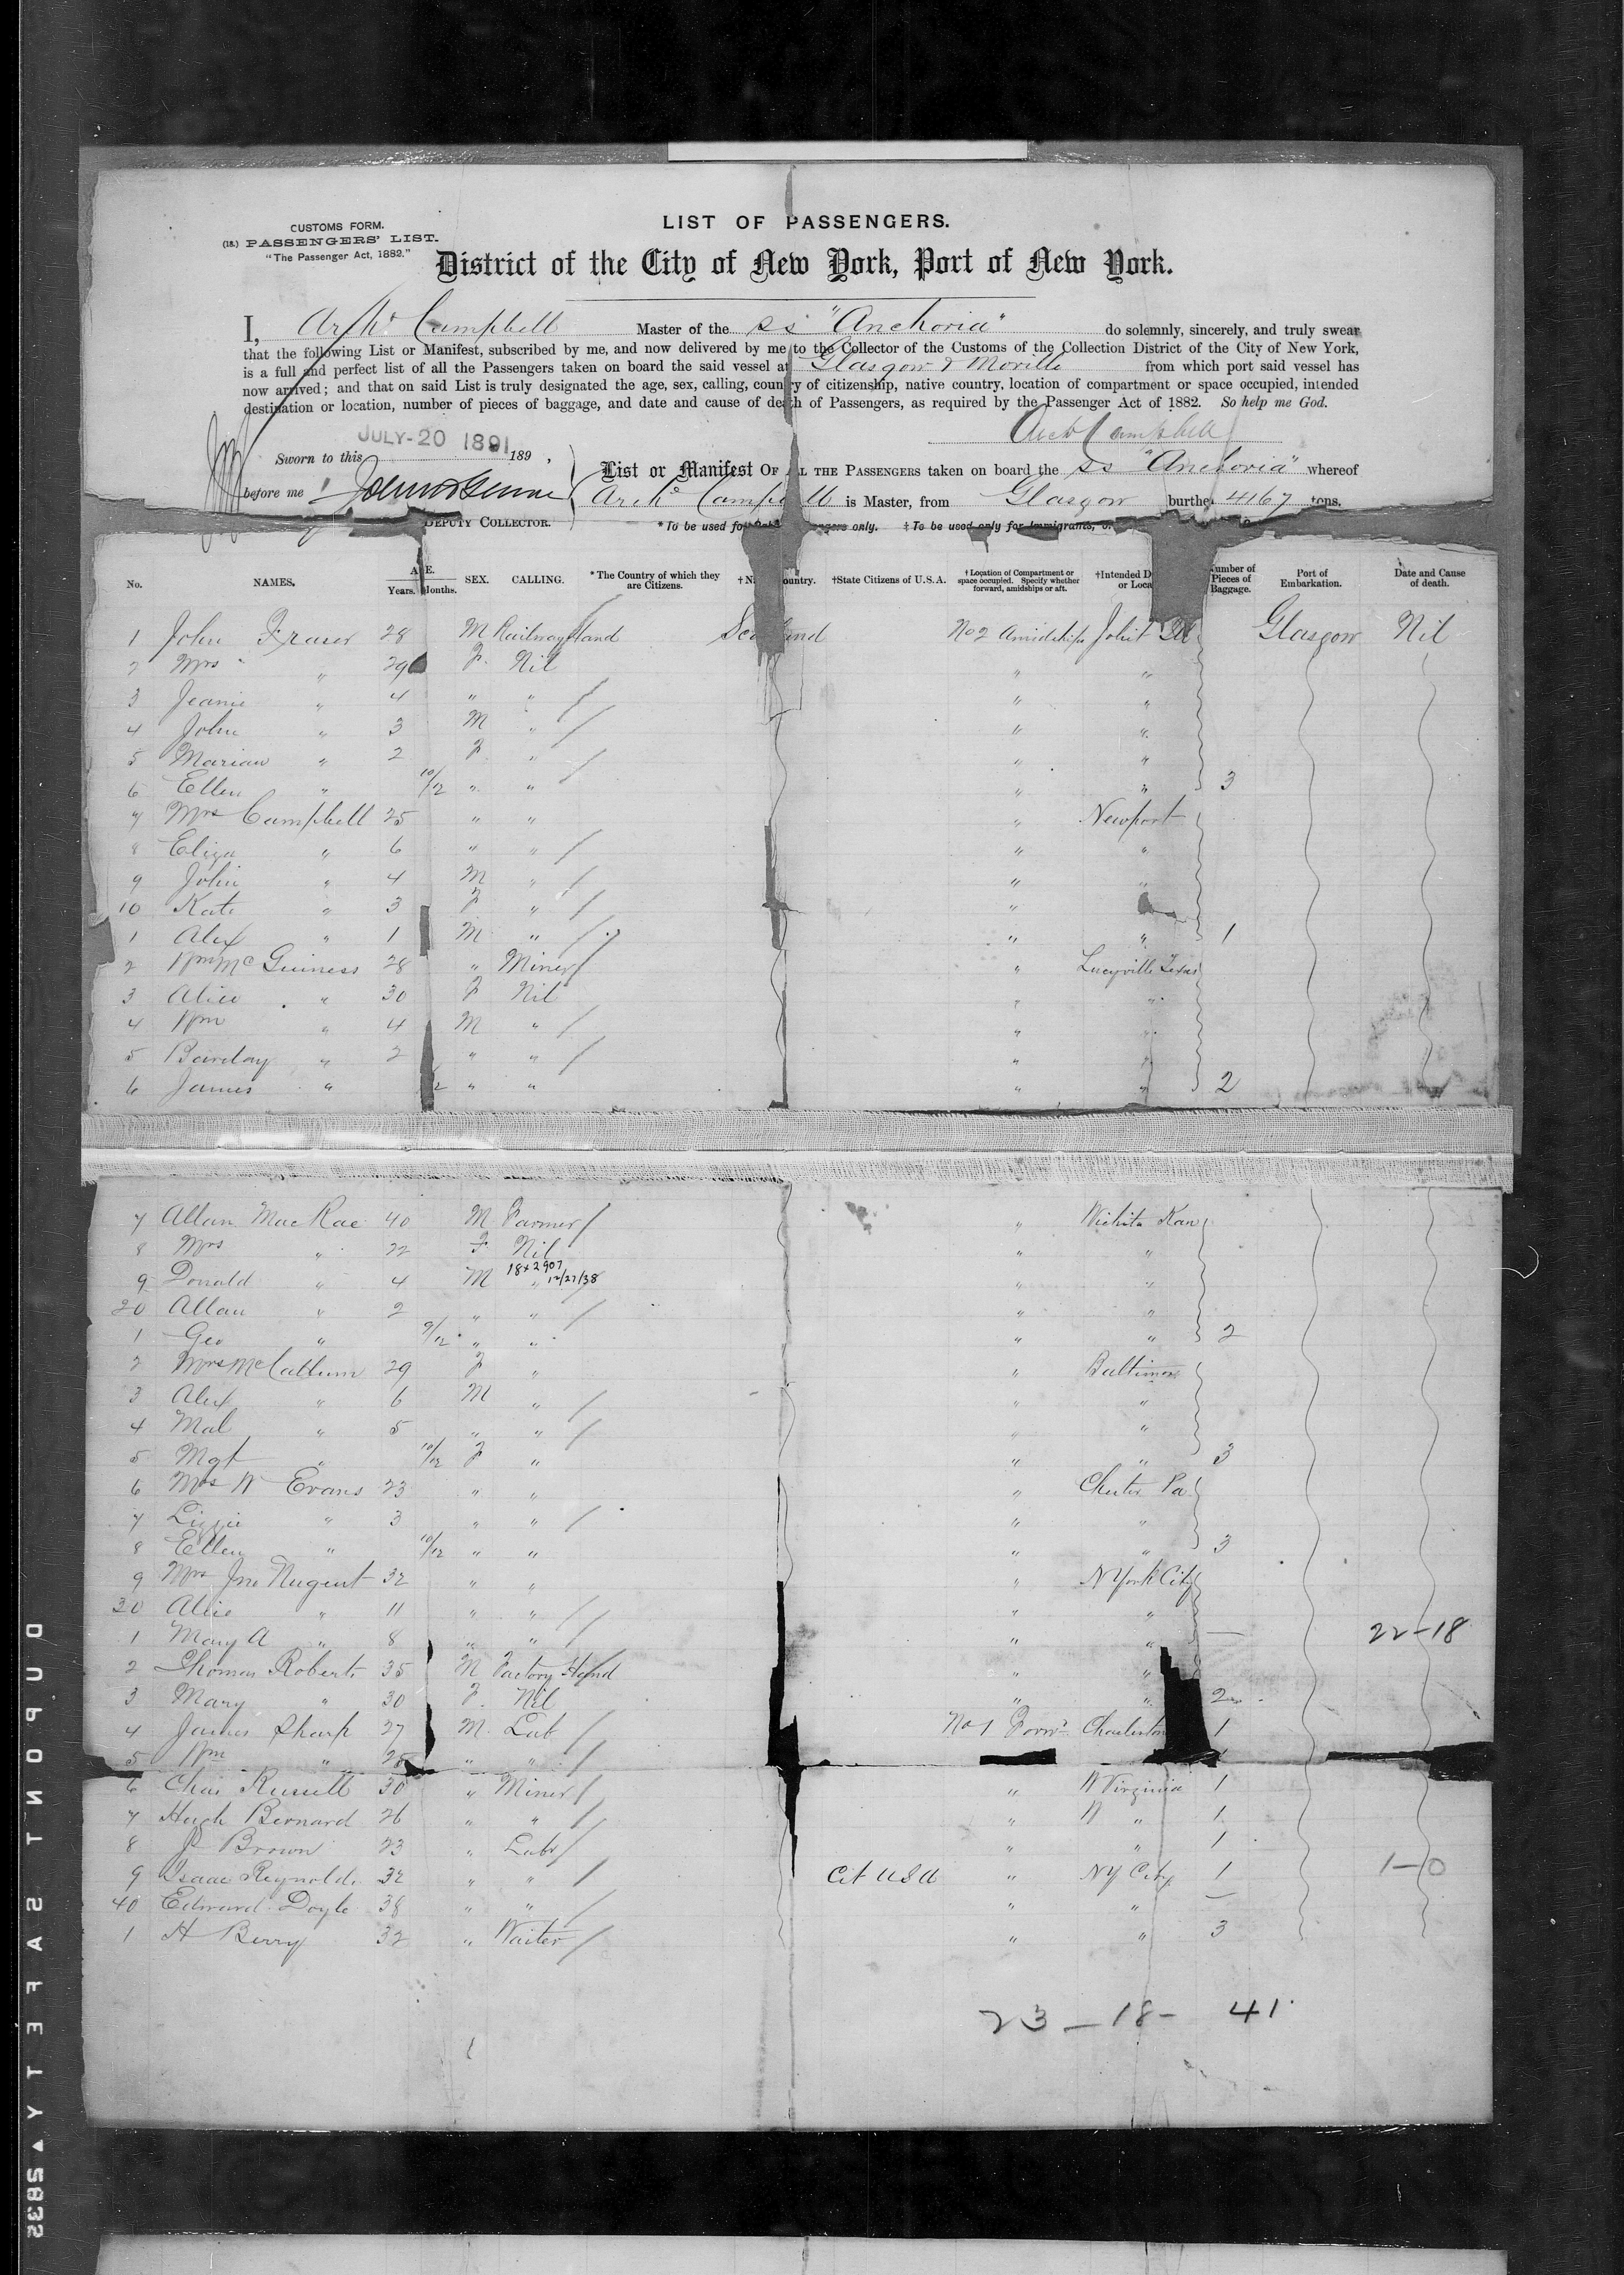 LIST OF PASSENGERS.
CUSTOMS FORM.
(18.) PASSENGERS' LIST.
"The Passenger Act, 1882."
District of the City of New York, Port of New York.
I, Archd Campbell Master of the ss "Anchoria" do solemnly, sincerely, and truly swear
that the following List or Manifest, subscribed by me, and now delivered by me to the Collector of the Customs of the Collection District of the City of New York,
is a full and perfect list of all the Passengers taken on board the said vessel at Glasgow & Moville from which port said vessel has
now arrived; and that on said List is truly designated the age, sex, calling, country of citizenship, native country, location of compartment or space occupied, intended
destination or location, number of pieces of baggage, and date and cause of death of Passengers, as required by the Passenger Act of 1882. So help me God.
Archd Campbell
Sworn to this JULY-20 1891 189 ,
before me
DEPUTY COLLECTOR.
List or Manifest OF ALL THE PASSENGERS taken on board the ss "Anchoria" whereof
Archd Campbell is Master, from Glasgow burthen 4167 tons.
* To be used for passengers only. † To be used only for Immigrants,
No. NAMES. AGE. Years. Months. SEX. CALLING. * The Country of which they are Citizens. † Country. †State Citizens of U.S.A. † Location of Compartment or space occupied. Specify whether forward, amidships or aft. †Intended Number of Pieces of Baggage. Port of Embarkation. Date and Cause of death.
1 John Fraser 28 M Railway Hand Scotland No 2 Amidships Joliet Ill Glasgow Nil
2 Mrs " 29 F. Nil " "
3 Jeanie " 4 " " " "
4 John " 3 M " " "
5 Marian " 2 F " " "
6 Ellen " 10/12 " " " " 3
7 Mrs Campbell 25 " " " Newport
8 Eliza " 6 " " " "
9 John " 4 M " " "
10 Kate " 3 F " "
1 Alex " 1 M " " " 1
2 Wm McGuiness 28 " Miner " Lucyville Texas
3 Alice " 30 F Nil " "
4 Wm " 4 M " " "
5 Barclay " 2 " " " "
6 James " " " " " 2
7 Allan MacRae 40 M Farmer " Wichita Kan
8 Mrs " 22 F Nil " "
9 Donald " 4 M 18x2907 " 12/27/38 " "
20 Allan " 2 " " " "
1 Geo " 9/12 " " " " 2
2 Mrs McCallum 29 F " " Baltimore
3 Alex " 6 M " " "
4 Mal " 5 " " " "
5 Mgt " 10/12 F " " " 3
6 Mrs W Evans 23 " " " Chester Pa
7 Lizzie " 3 " " " "
8 Ellen " 10/12 " " " " 3
9 Mrs Jno Nugent 32 " " " N York City
30 Alice " 11 " " " "
1 Mary A " 8 " " " " — 22-18
2 Thomas Roberts 35 M Factory Hand " "
3 Mary " 30 F. Nil " " 2
4 James Sharp 27 M Lab No 1 Forwd Charleston 1
5 Wm " 25 " "
6 Chas Russell 30 " Miner " W Virginia 1
7 Hugh Bernard 26 " " " W " 1
8 Js Brown 23 " Labr " " 1
9 Isaac Reynolds 32 " " Cit USA " NY City 1 1-0
40 Edward Doyle 38 " " " " —
1 H Berry 32 " Waiter " " 3
23 — 18 — 41
DUPONT SAFETY S832